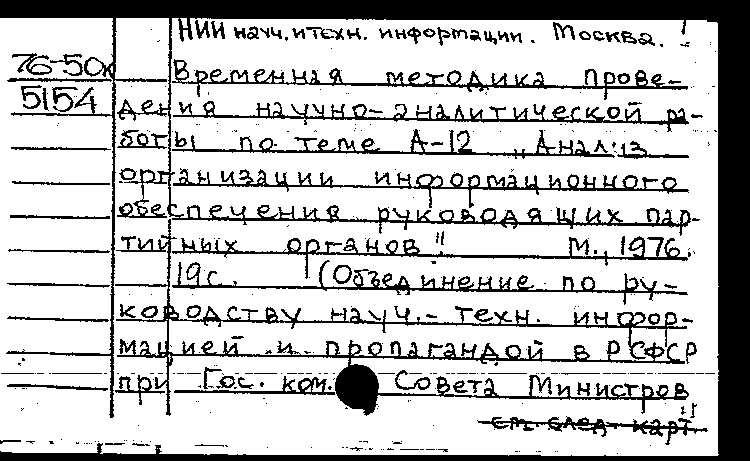 НИИ науч. и техн. информации. Москва.
76-50к
5154
Временная методика прове-
дения научно-аналитической ра-
боты по теме А-12 „Анализ
организации информационного
обеспечения руководящих пар-
тийных органов" М., 1976.
19с. (Объединение по ру-
ководству науч.-техн. инфор-
мацией и пропагандой в РСФСР
при Гос. ком. Совета Министров
см. след. карт.